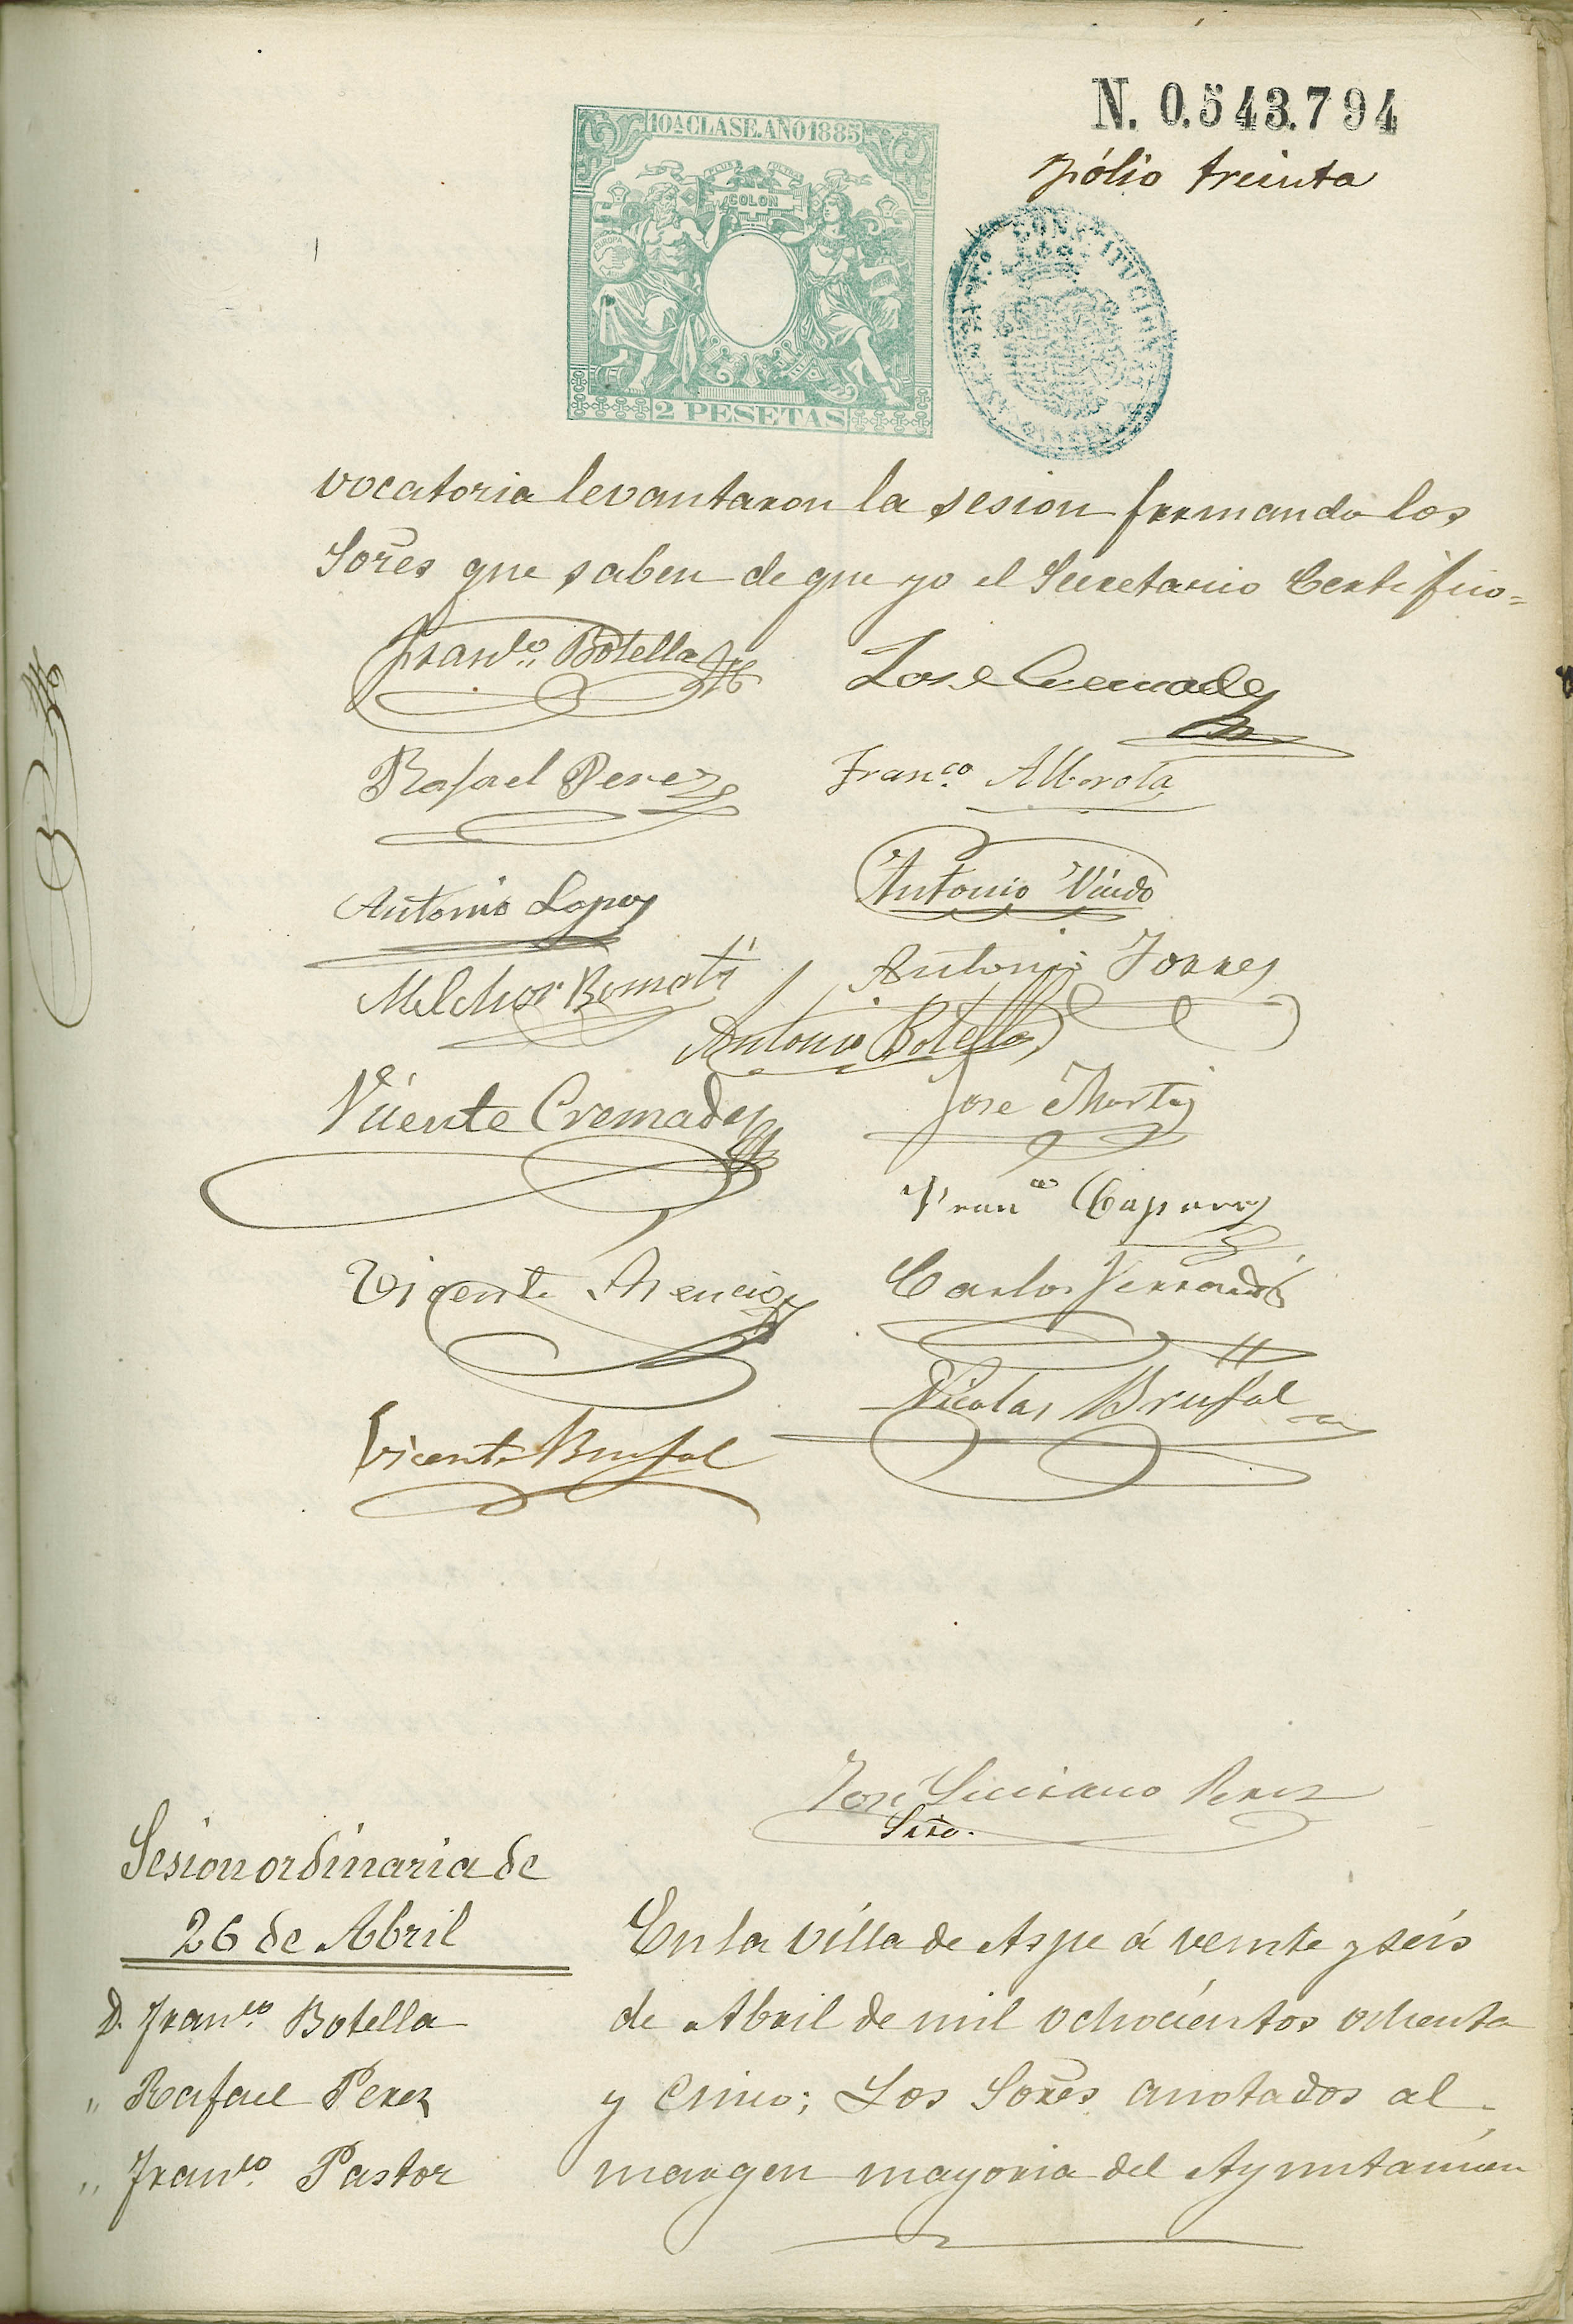 N. 0.543.794
fólio treinta
10ª CLASE. AÑO 1885
PLUS ULTRA
COLON
EUROPA
2 PESETAS
vocatoria levantaron la sesion firmando los
Sores que saben de que yo el Secretario Certifico=
Franco. Botella
Jose Cremades
Rafael Perez
Franco. Alberola
Antonio Lopez
Antonio Viudo
Melchor
Antonio Torres
Antonio Botella
Vicente Cremades
Jose Martiz
Franco Caparros
Vicente Asencio
Carlos Ferrandiz
Nicolas Brufal
Vicente Brufal
José Perez
Srio.
Sesion ordinaria de
26 de Abril
D. Franco. Botella
" Rafael Perez
" Franco. Pastor
En la Villa de Aspe á veinte y seis
de Abril de mil ochocientos ochenta
y Cinco; Los Sores anotados al
margen mayoria del Ayuntamien